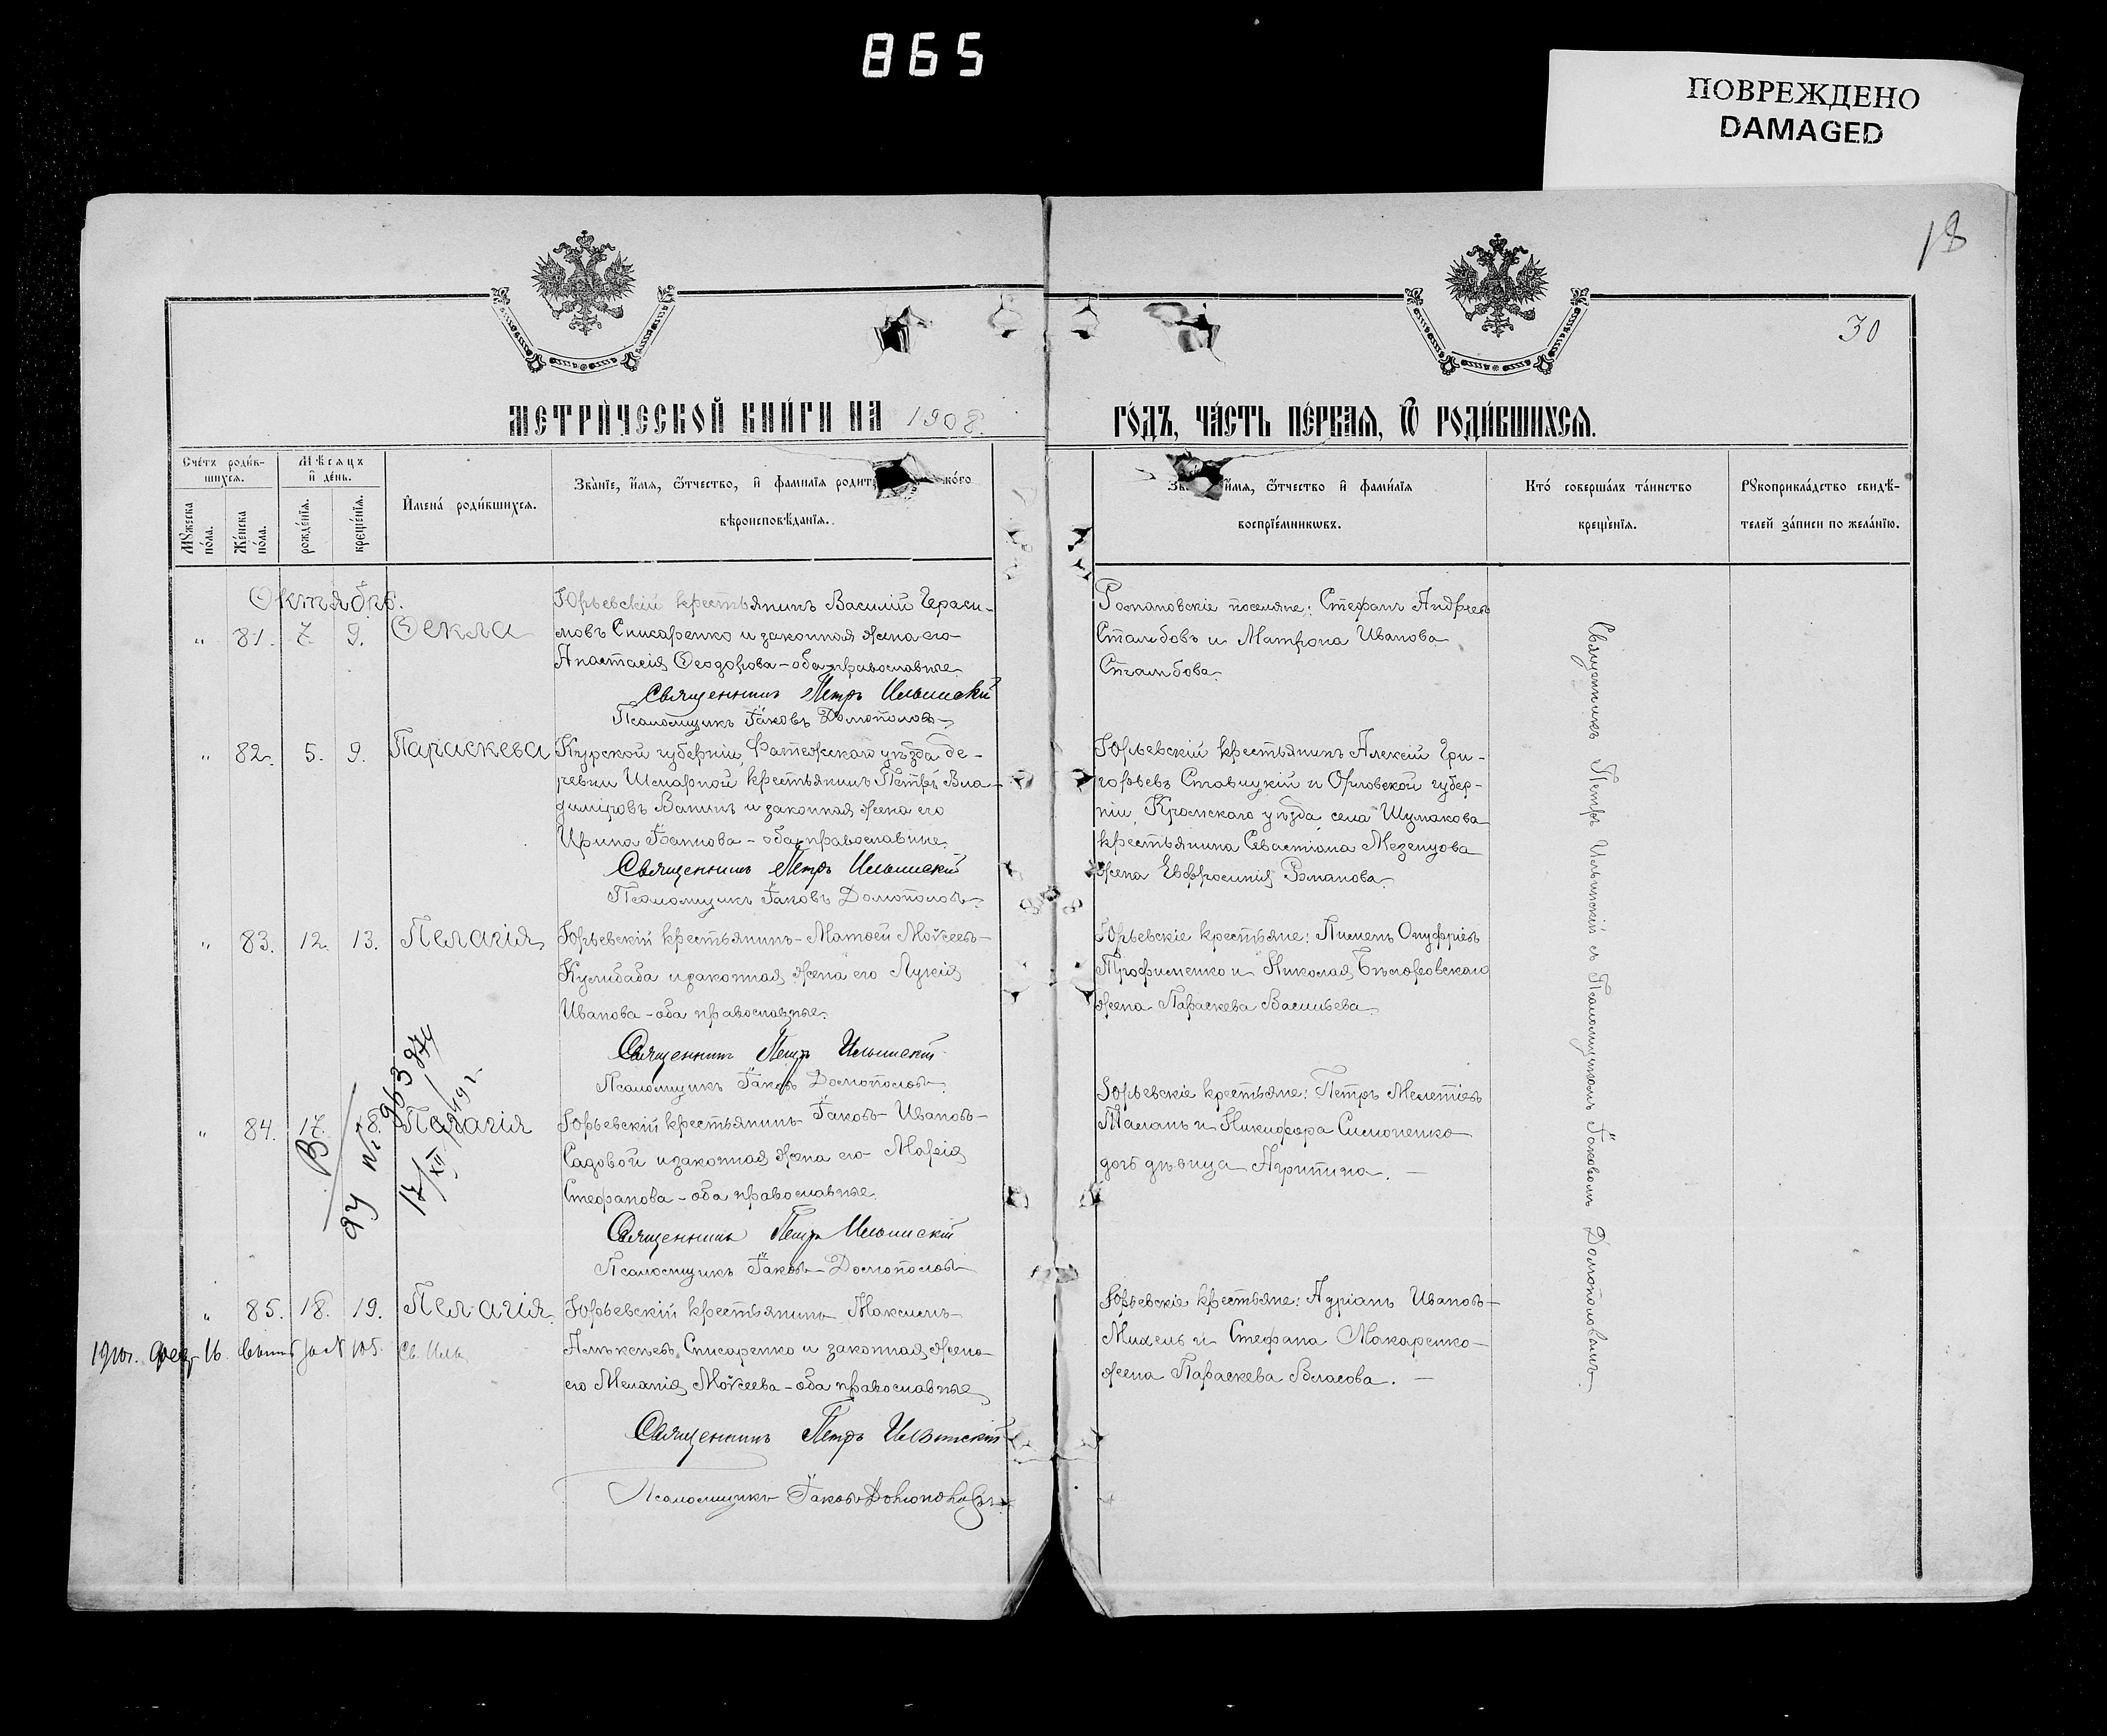 865
ПОВРЕЖДЕНО
DAMAGED
18
30
МЕТРИ́ЧЕСКОЙ КНИ́ГИ НА 1908.
ГО́ДЪ, ЧА́СТЬ ПЕ́РВАЯ, Ѿ РОДИ́ВШИХСЯ.
Сче́тъ роди́в-
шихся.
Мѣсяцъ
и҆ де́нь.
Мꙋжеска
по́ла.
Же́нска
по́ла.
рожде́нїя.
креще́нїя.
И҆мена̀ роди́вшихся.
Зва́нїе, и҆́мя, ѻ҆́тчество, и҆ фами́лїя родит ко́гѡ
вѣроисповѣ́данїя.
Зва и҆́мя, ѻ҆́тчество и҆ фами́лїя
воспрїе́мникѡвъ.
Кто̀ соверша́лъ та́инство
креще́нїя.
Рꙋкоприкла́дство свидѣ́-
телей за́писи по жела́нїю.
Октябрь.
„ 81. 7. 9. Ѳекла
Юрьевскій крестьянинъ Василій Гераси-
мовъ Снисаренко и законная жена его
Анастасія Ѳеодорова – оба православные.
Священникъ Петръ Ильинскій
Псаломщикъ Іаковъ Домополовъ
Романовскіе поселяне: Стефанъ Андреевъ
Сталибовъ и Матрона Иванова
Сталибова.
„ 82. 5. 9. Параскева
Курской губерніи, Фатежскаго уѣзда де-
ревни Шмарной крестьянинъ Петръ Вла-
диміровъ Ванинъ и законная жена его
Ирина Іоаннова – оба православные.
Священникъ Петръ Ильинскій
Псаломщикъ Іаковъ Домополовъ
Юрьевскій крестьянинъ Алексій Гри-
горьевъ Ставицкій и Орловской губер-
ніи, Кромскаго уѣзда, села Шумакова
крестьянина Севастіана Мезенцова
жена Евфросинія Романова.
„ 83. 12. 13. Пелагія
Юрьевскій крестьянинъ Матѳей Моѵсеевъ
Кулибаба и законная жена его Лукія
Иванова – оба православные.
Священникъ Петръ Ильинскій
Псаломщикъ Іаковъ Домополовъ
Юрьевскіе крестьяне: Пименъ Онуфріевъ
Трофименко и Николая Бѣлофовскаго
жена Параскева Васильева.
„ 84. 17. 18. Пелагія
Юрьевскій крестьянинъ Іаковъ Ивановъ
Садовой и законная жена его Марія
Стефанова – оба православные.
Священникъ Петръ Ильинскій
Псаломщикъ Іаковъ Домополовъ
Юрьевскіе крестьяне: Петръ Мелетіевъ
Таланъ и Никифора Симоненко
дочь дѣвица Агрипина. –
№ 963
17/XII 1949 г.
„ 85. 18. 19. Пелагія
Юрьевскій крестьянинъ Максимъ
Алексѣевъ Снисаренко и законная жена
его Меланія Моѵсеева – оба православные
Священникъ Петръ Ильинскій
Псаломщикъ Іаковъ Домополовъ
Юрьевскіе крестьяне: Адріанъ Ивановъ
Михель и Стефана Макаренко
жена Параскева Власова. –
1910г. Февр 16. за № 105. Св. Иль
Священникъ Петръ Ильинскій съ Псаломщикомъ Іаковомъ Домополовымъ